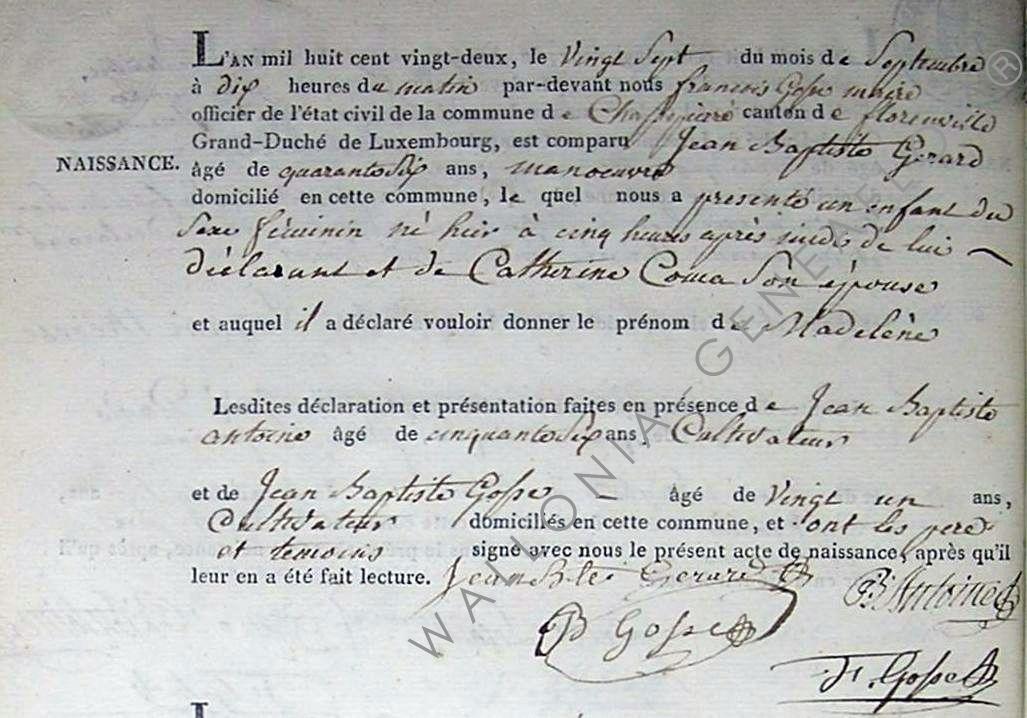 L'AN mil huit cent vingt-deux, le Vingt Sept du mois de Septembre
à dix heures du matin par-devant nous francois Gosse maire
officier de l'état civil de la commune de Chassepierre canton de florenville
Grand-Duché de Luxembourg, est comparu Jean Baptiste Gerard
NAISSANCE.
âgé de quarante Six ans, manoeuvre
domicilié en cette commune, le quel nous a presenté un enfant du
Sexe féminin né hier à cinq heures après midi de lui
déclarant et de Catherine Coma Son épouse
et auquel il a déclaré vouloir donner le prénom de Madelène
Lesdites déclaration et présentation faites en présence de Jean Baptiste
antoine âgé de cinquante Six ans, Cultivateur
et de Jean Baptiste Gosse — âgé de Vingt un ans,
Cultivateur domiciliés en cette commune, et ont les pere
et temoins signé avec nous le présent acte de naissance, après qu'il
leur en a été fait lecture. Jean Bte Gerard
B Antoine
JB Gosse
F. Gosse
WALLONIA GENEALOGIE ®